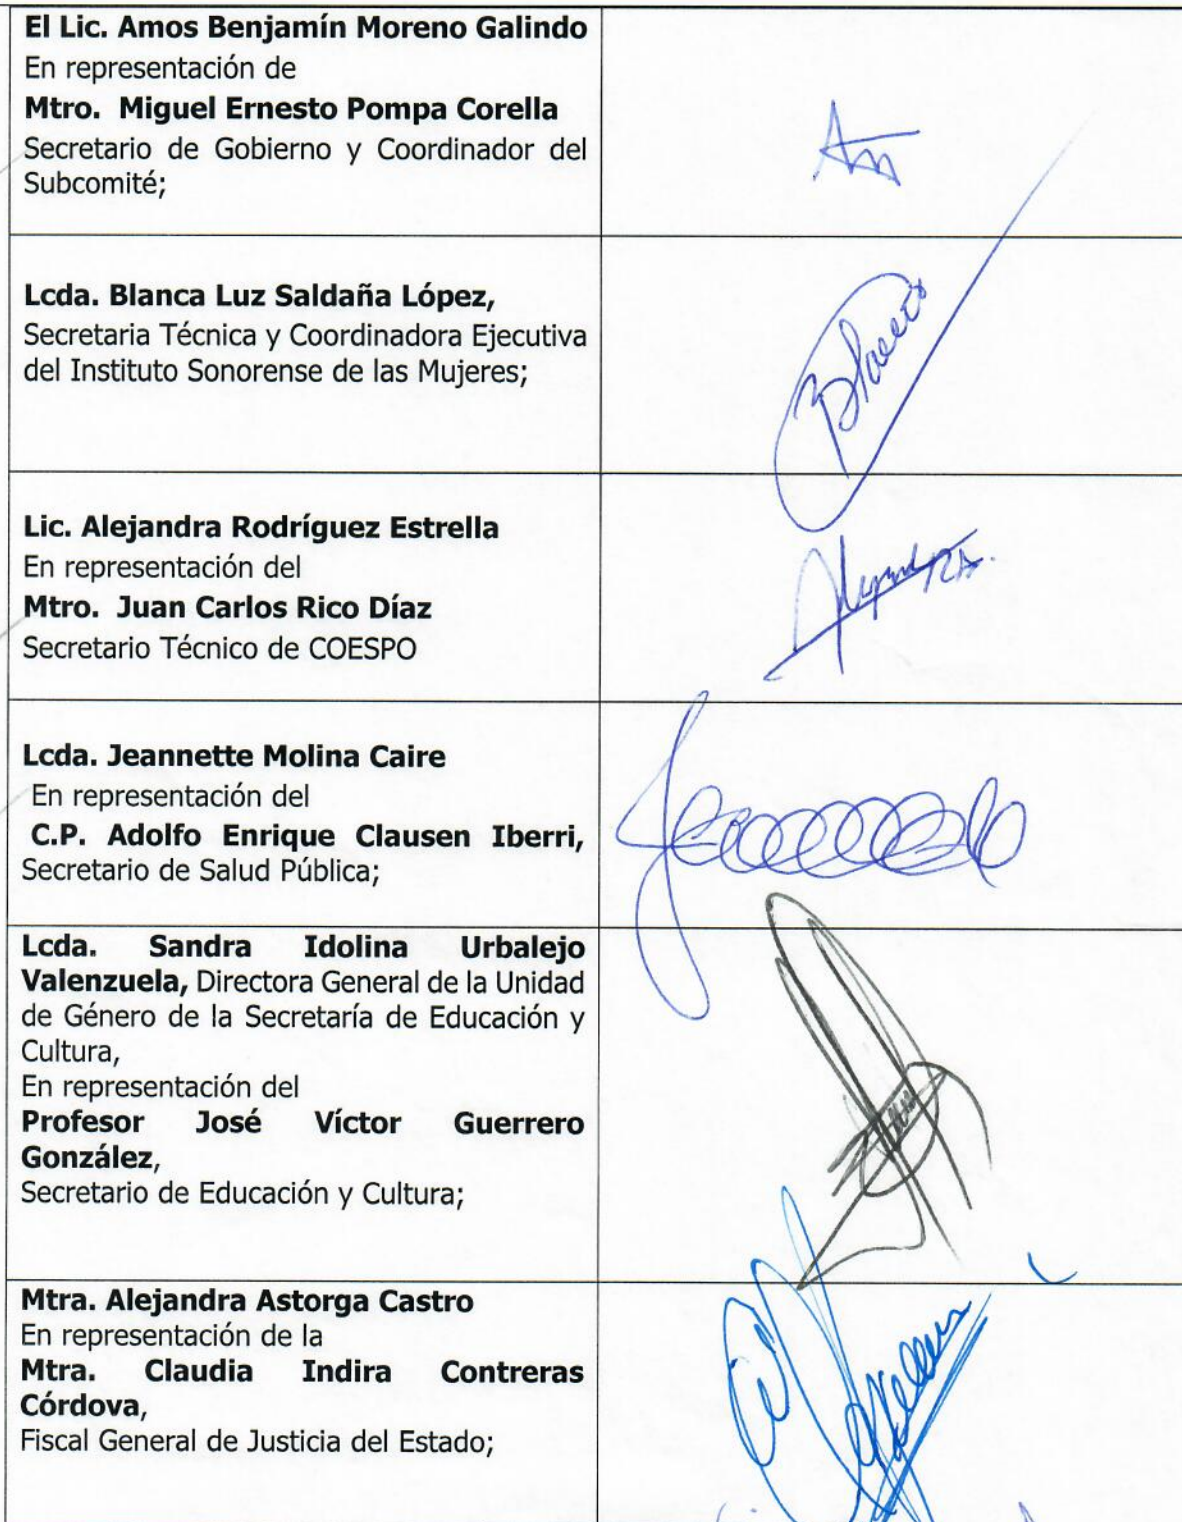 El Lic. Amos Benjamín Moreno Galindo
En representación de
Mtro. Miguel Ernesto Pompa Corella
Secretario de Gobierno y Coordinador del
Subcomité;
Lcda. Blanca Luz Saldaña López,
Secretaria Técnica y Coordinadora Ejecutiva
del Instituto Sonorense de las Mujeres;
Lic. Alejandra Rodríguez Estrella
En representación del
Mtro. Juan Carlos Rico Díaz
Secretario Técnico de COESPO
Lcda. Jeannette Molina Caire
En representación del
C.P. Adolfo Enrique Clausen Iberri,
Secretario de Salud Pública;
Lcda. Sandra Idolina Urbalejo
Valenzuela, Directora General de la Unidad
de Género de la Secretaría de Educación y
Cultura,
En representación del
Profesor José Víctor Guerrero
González,
Secretario de Educación y Cultura;
Mtra. Alejandra Astorga Castro
En representación de la
Mtra. Claudia Indira Contreras
Córdova,
Fiscal General de Justicia del Estado;